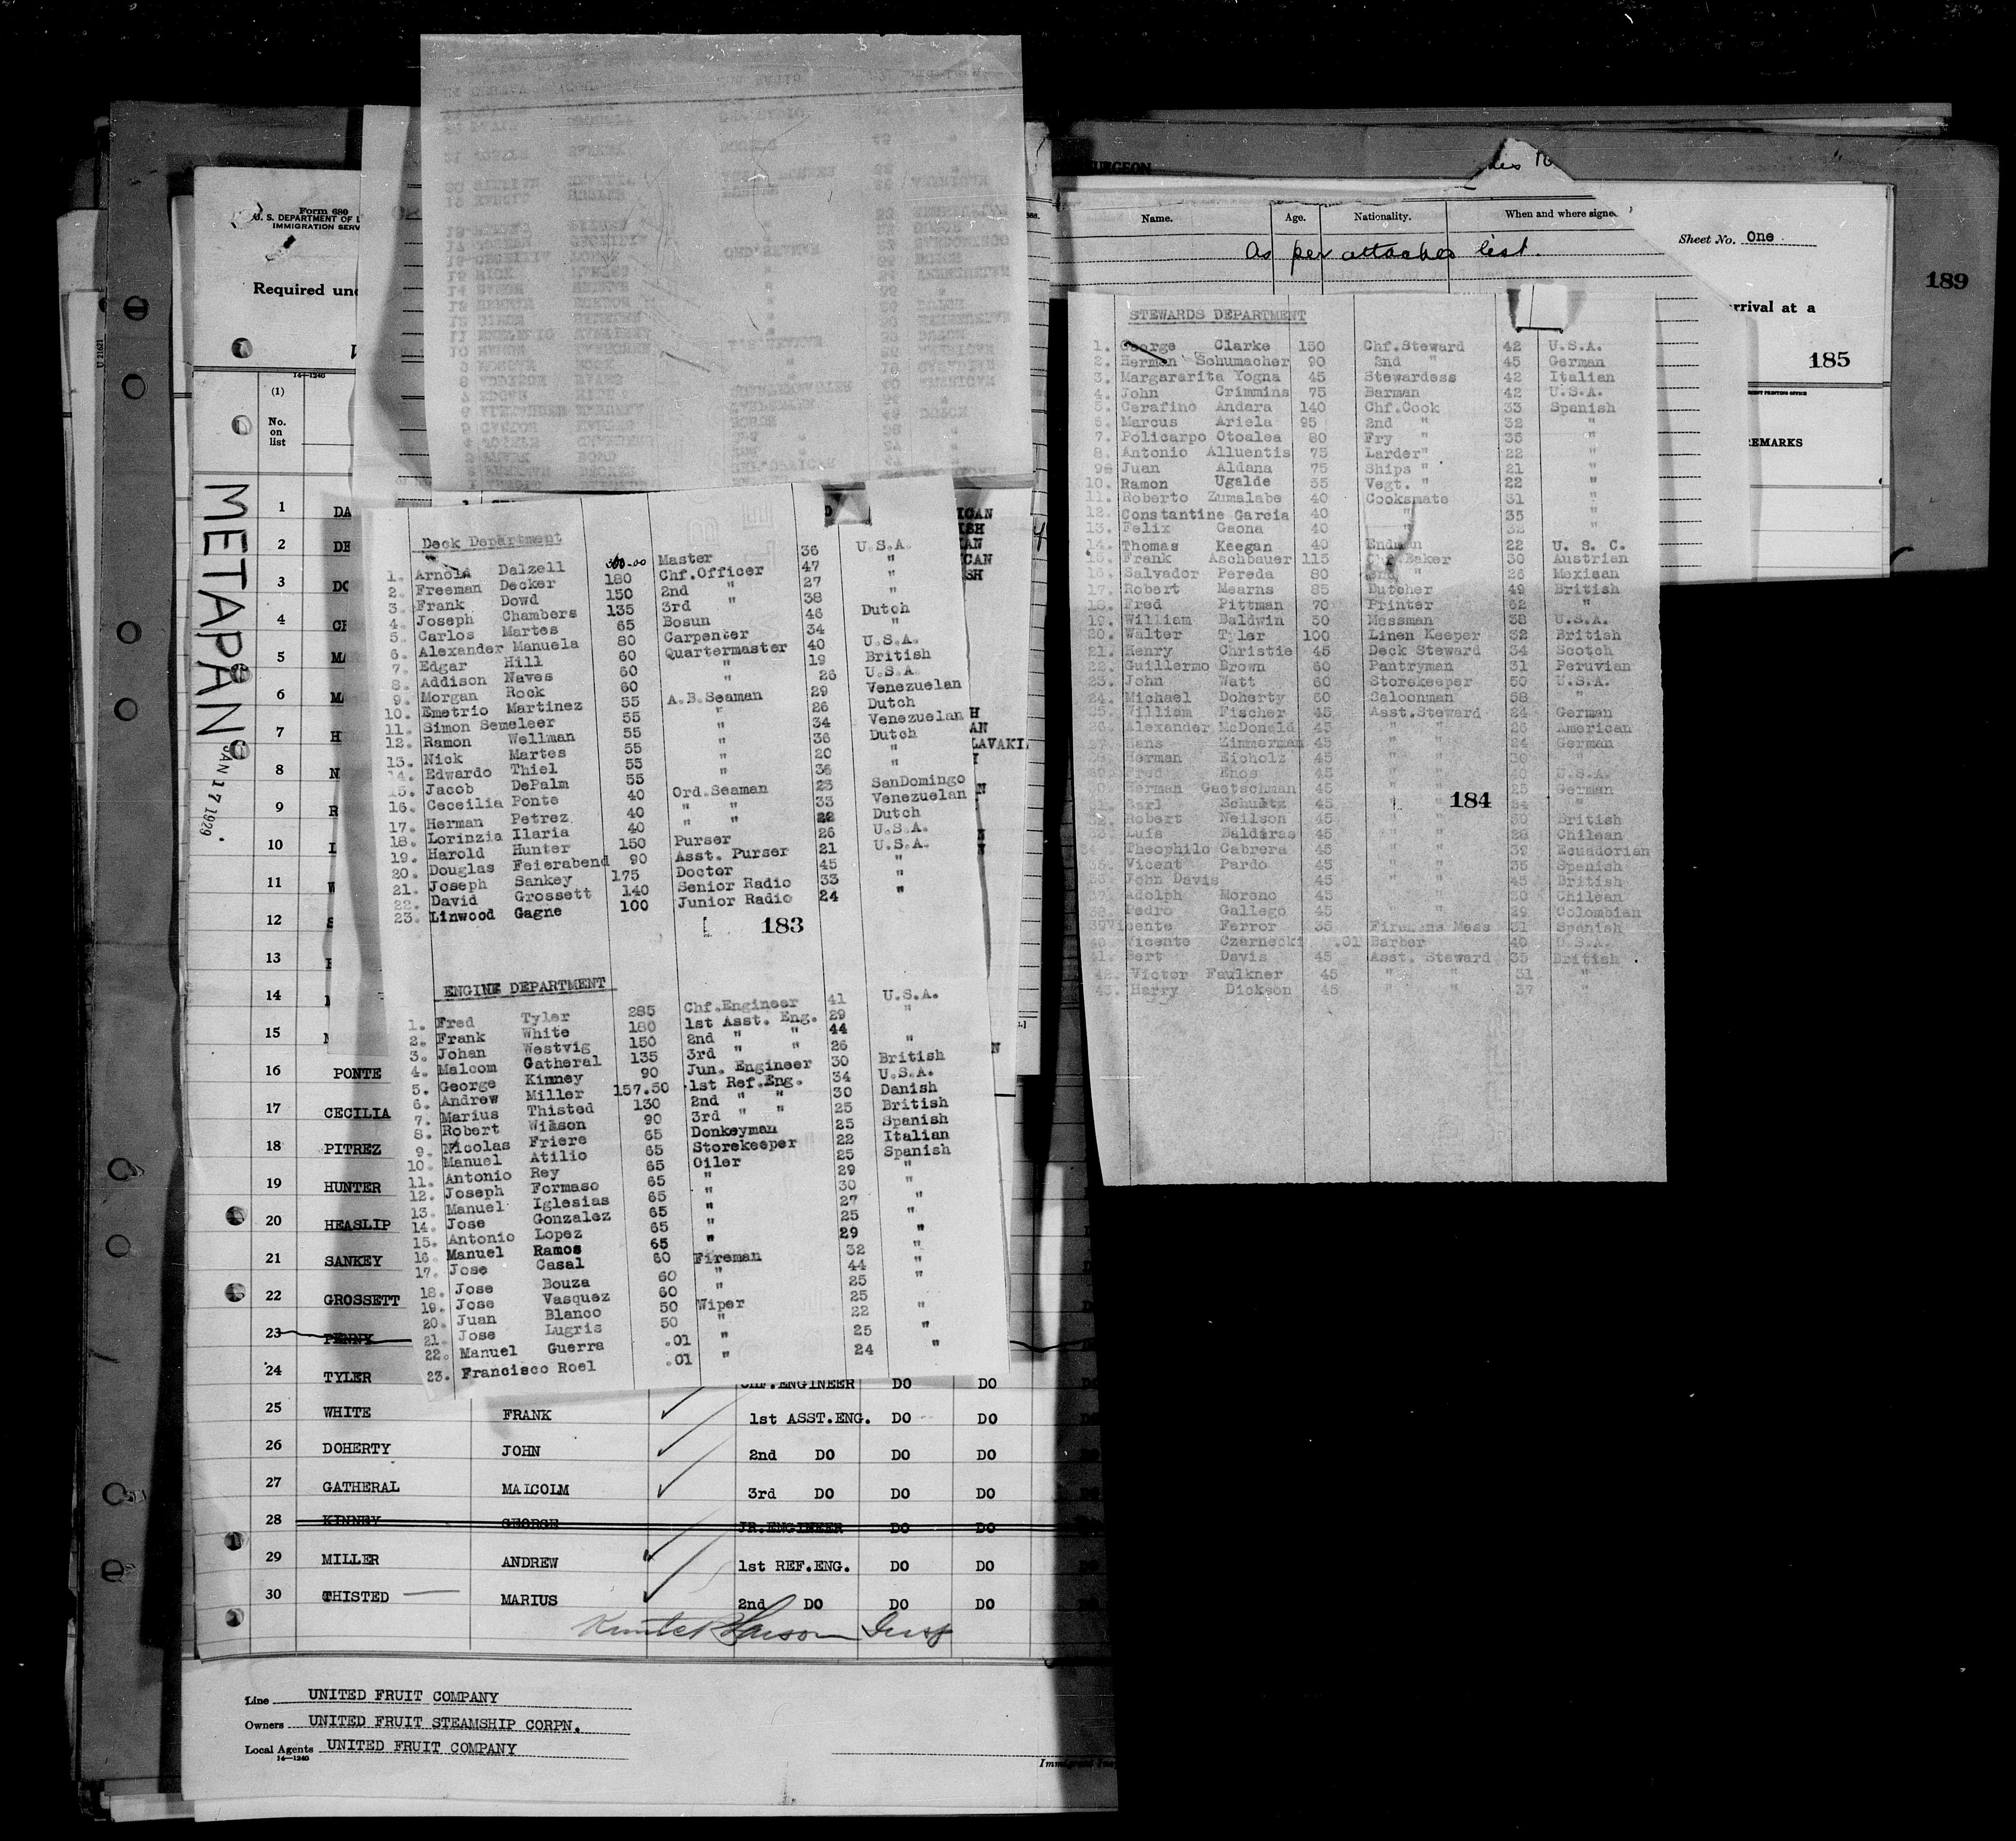 Form 680
U. S. DEPARTMENT OF L
IMMIGRATION SERV
Required und
14—1240
(1)
No.
on
list
METAPAN
JAN 17 1929
U 21621
URGEON
Name. Age. Nationality. When and where signe
As per attached list.
Sheet No. One
189
rrival at a
185
EMARKS
Deck Department
1. Arnold Dalzell 300.00 Master 36 U.S.A.
2. Freeman Decker 180 Chf.Officer 47 "
3. Frank Dowd 150 2nd " 27 "
4. Joseph Chambers 135 3rd " 38 "
5. Carlos Martes 65 Bosun 46 Dutch
6. Alexander Manuela 80 Carpenter 34 "
7. Edgar Hill 60 Quartermaster 40 U.S.A.
8. Addison Naves 60 " 19 British
9. Morgan Rock 60 " 26 U.S.A.
10. Emetrio Martinez 55 A.B.Seaman 29 Venezuelan
11. Simon Semeleer 55 " 26 Dutch
12. Ramon Wellman 55 " 34 Venezuelan
13. Nick Martes 55 " 36 Dutch
14. Edwardo Thiel 55 " 20 "
15. Jacob DePalm 55 " 36
16. Ceceilia Ponte 40 Ord.Seaman 23 SanDomingo
17. Herman Petrez 40 " " 33 Venezuelan
18. Lorinzia Ilaria 40 " " 22 Dutch
19. Harold Hunter 150 Purser 26 U.S.A.
20. Douglas Feierabend 90 Asst. Purser 21 U.S.A.
21. Joseph Sankey 175 Doctor 45 "
22. David Grossett 140 Senior Radio 33
23. Linwood Gagne 100 Junior Radio 24 "
183
ENGINE DEPARTMENT
1. Fred Tyler 285 Chf.Engineer 41 U.S.A.
2. Frank White 180 1st Asst. Eng. 29 "
3. Johan Westvig 150 2nd " " 44
4. Malcom Gatheral 135 3rd " " 26 "
5. George Kinney 90 Jun. Engineer 30 British
6. Andrew Miller 157.50 1st Ref.Eng. 34 U.S.A.
7. Marius Thisted 130 2nd " " 30 Danish
8. Robert Wilson 90 3rd " " 25 British
9. Nicolas Friere 65 Donkeyman 25 Spanish
10. Manuel Atilio 65 Storekeeper 22 Italian
11. Antonio Rey 65 Oiler 25 Spanish
12. Joseph Formaso 65 " 29 "
13. Manuel Iglesias 65 " 30
14. Jose Gonzalez 65 " 27 "
15. Antonio Lopez 65 " 25 "
16. Manuel Ramos 65 " 29 "
17. Jose Casal 60 Fireman 32 "
18. Jose Bouza 60 " 44 "
19. Jose Vasquez 60 " 25 "
20. Juan Blanco 50 Wiper 25
21. Jose Lugris 50 " 22 "
22. Manuel Guerra .01 " 25 "
23. Francisco Roel .01 " 24 "
STEWARDS DEPARTMENT
1. George Clarke 150 Chf.Steward 42 U.S.A.
2. Herman Schumacher 90 2nd " 45 German
3. Margararita Yogna 45 Stewardess 42 Italian
4. John Crimmins 75 Barman 42 U.S.A.
5. Cerafino Andara 140 Chf.Cook 33 Spanish
6. Marcus Ariela 95 2nd " 32 "
7. Policarpo Otoalea 80 Fry " 35 "
8. Antonio Alluentis 75 Larder" 22 "
9. Juan Aldana 75 Ships " 21 "
10. Ramon Ugalde 55 Vegt. " 22 "
11. Roberto Zumalabe 40 Cooksmate 31 "
12. Constantine Garcia 40 " 35 "
13. Felix Gaona 40 " 32 "
14. Thomas Keegan 40 Endman 22 U. S. C.
15. Frank Aschbauer 115 Chf.Baker 30 Austrian
16. Salvador Pereda 80 2nd " 26 Mexican
17. Robert Mearns 85 Butcher 49 British
18. Fred Pittman 70 Printer 62 "
19. William Baldwin 50 Messman 38 U.S.A.
20. Walter Tyler 100 Linen Keeper 32 British
21. Henry Christie 45 Deck Steward 34 Scotch
22. Guillermo Brown 60 Pantryman 31 Peruvian
23. John Watt 60 Storekeeper 50 U.S.A.
24. Michael Doherty 50 Saloonman 58 "
25. William Fischer 45 Asst.Steward 24 German
26. Alexander McDonald 45 " " 26 American
27. Hans Zimmerman 45 " " 24 German
28. Herman Eicholz 45 " " 30 "
Fred Enos 45 " " 40 U.S.A.
30. Herman Gaetschman 45 " " 25 German
31. Carl Schultz 45 " 34 "
184
32. Robert Neilson 45 " " 30 British
33. Luis Balderas 45 " " 28 Chilean
34. Theophilo Cabrera 45 " " 39 Ecuadorian
35. Vicent Pardo 45 " " 35 Spanish
36. John Davis 45 " " 45 British
37. Adolph Moreno 45 " " 30 Chilean
38. Pedro Gallego 45 " " 29 Colombian
39 Vicente Ferror 35 Firemens Mess 31 Spanish
40. Vicente Czarnecki .01 Barber 40 U.S.A.
41. Bert Davis 45 Asst. Steward 35 British
42. Victor Faulkner 45 " " 31 "
43. Harry Dickson 45 " " 37 "
1 DA
2 DE
3 DO
4 CH
5 MAR
6 MA
7 HI
8 N
9 R
10 I
11 W
12 S
13
14
15
16 PONTE
17 CECILIA
18 PITREZ
19 HUNTER
20 HEASLIP
21 SANKEY
22 GROSSETT
23 PENNY
24 TYLER CHF.ENGINEER DO DO
25 WHITE FRANK 1st ASST.ENG. DO DO
26 DOHERTY JOHN 2nd DO DO DO
27 GATHERAL MALCOLM 3rd DO DO DO
28 KINNEY GEORGE JR.ENGINEER DO DO
29 MILLER ANDREW 1st REF.ENG. DO DO
30 THISTED MARIUS 2nd DO DO DO
Line UNITED FRUIT COMPANY
Owners UNITED FRUIT STEAMSHIP CORPN.
Local Agents UNITED FRUIT COMPANY
14—1240